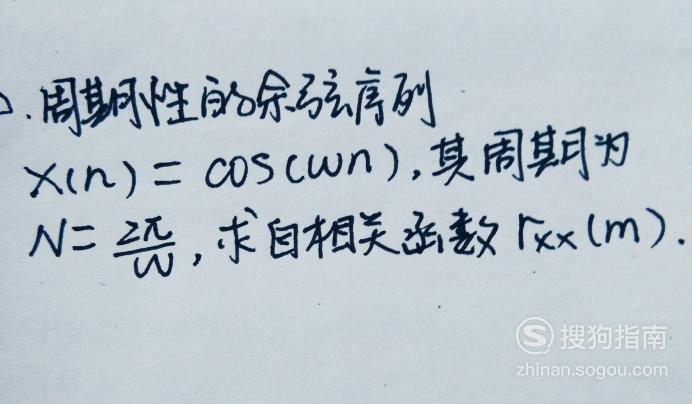 周期性的余弦序列
x(n) = cos(ωn), 其周期为
N = 2π/ω, 求自相关函数 rxx(m).
搜狗指南
zhinan.sogou.com